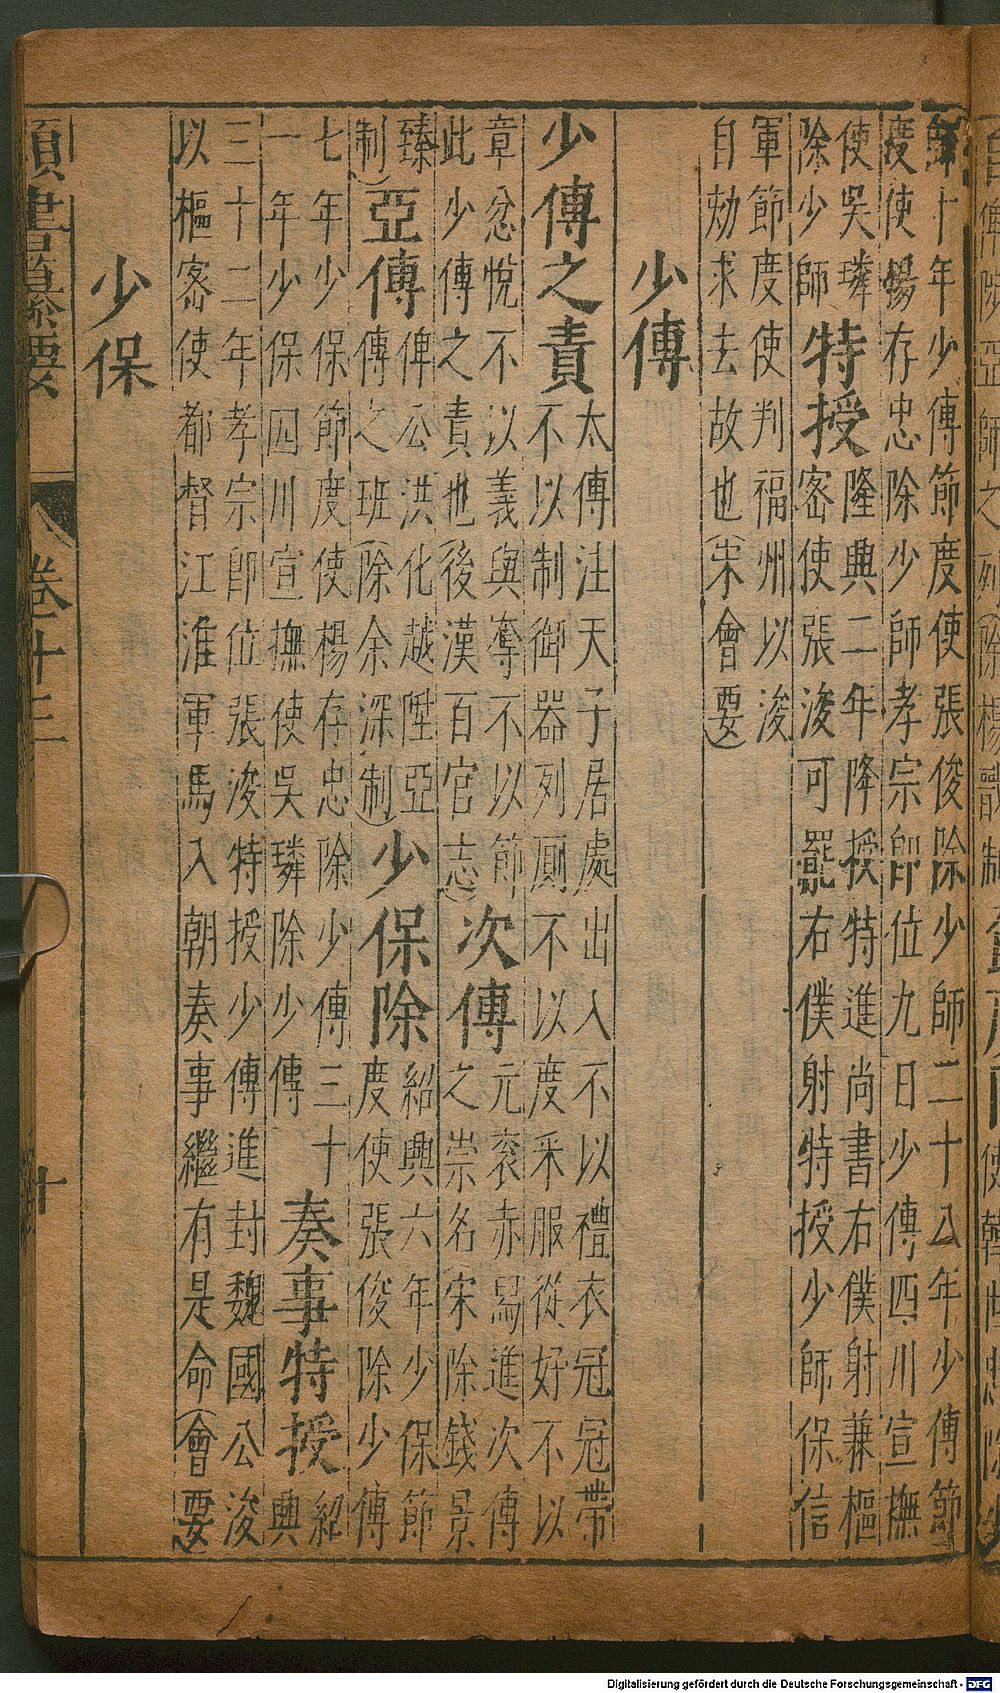 師十年少傅節度使張俊除少師二十八年少傅節
度使楊存忠除少師孝宗卽位九日少傅四川宣撫
使吳璘
除少師
特授
隆興二年降授特進尚書右僕射兼樞
密使張浚可罷右僕射特授少師保信
軍節度使判福州以浚
自劾求去故也(宋會要)
少傅
少傅之責
太傅注天子居處出入不以禮衣冠冠帶
不以制御器列厠不以度釆服從好不以
章忿悅不以義與奪不以節
此少傅之責也(後漢百官志)
次傅
元衮赤舄進次傅
之崇名宋除錢景
臻
制)
亞傅
俾公洪化越陞亞
傅之班(除余深制)
少保除
紹興六年少保節
度使張俊除少傅
七年少保節度使楊存忠除少傅三十
一年少保四川宣撫使吳璘除少傅
奏事特授
紹
興
三十二年孝宗卽位張浚特授少傅進封魏國公浚
以樞密使都督江淮軍馬入朝奏事繼有是命(會要)
少保
類書纂要
卷十三
十
Digitalisierung gefördert durch die Deutsche Forschungsgemeinschaft - DFG